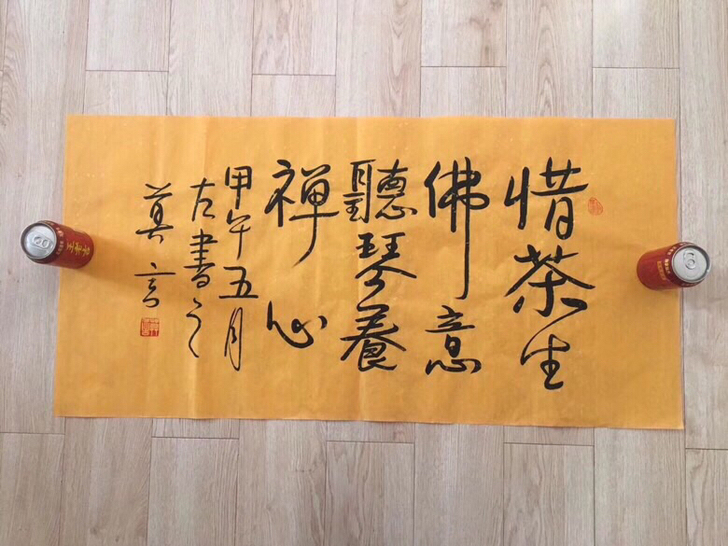 惜茶生
佛意
聽琴養
禪心
甲午五月
左書之
莫言